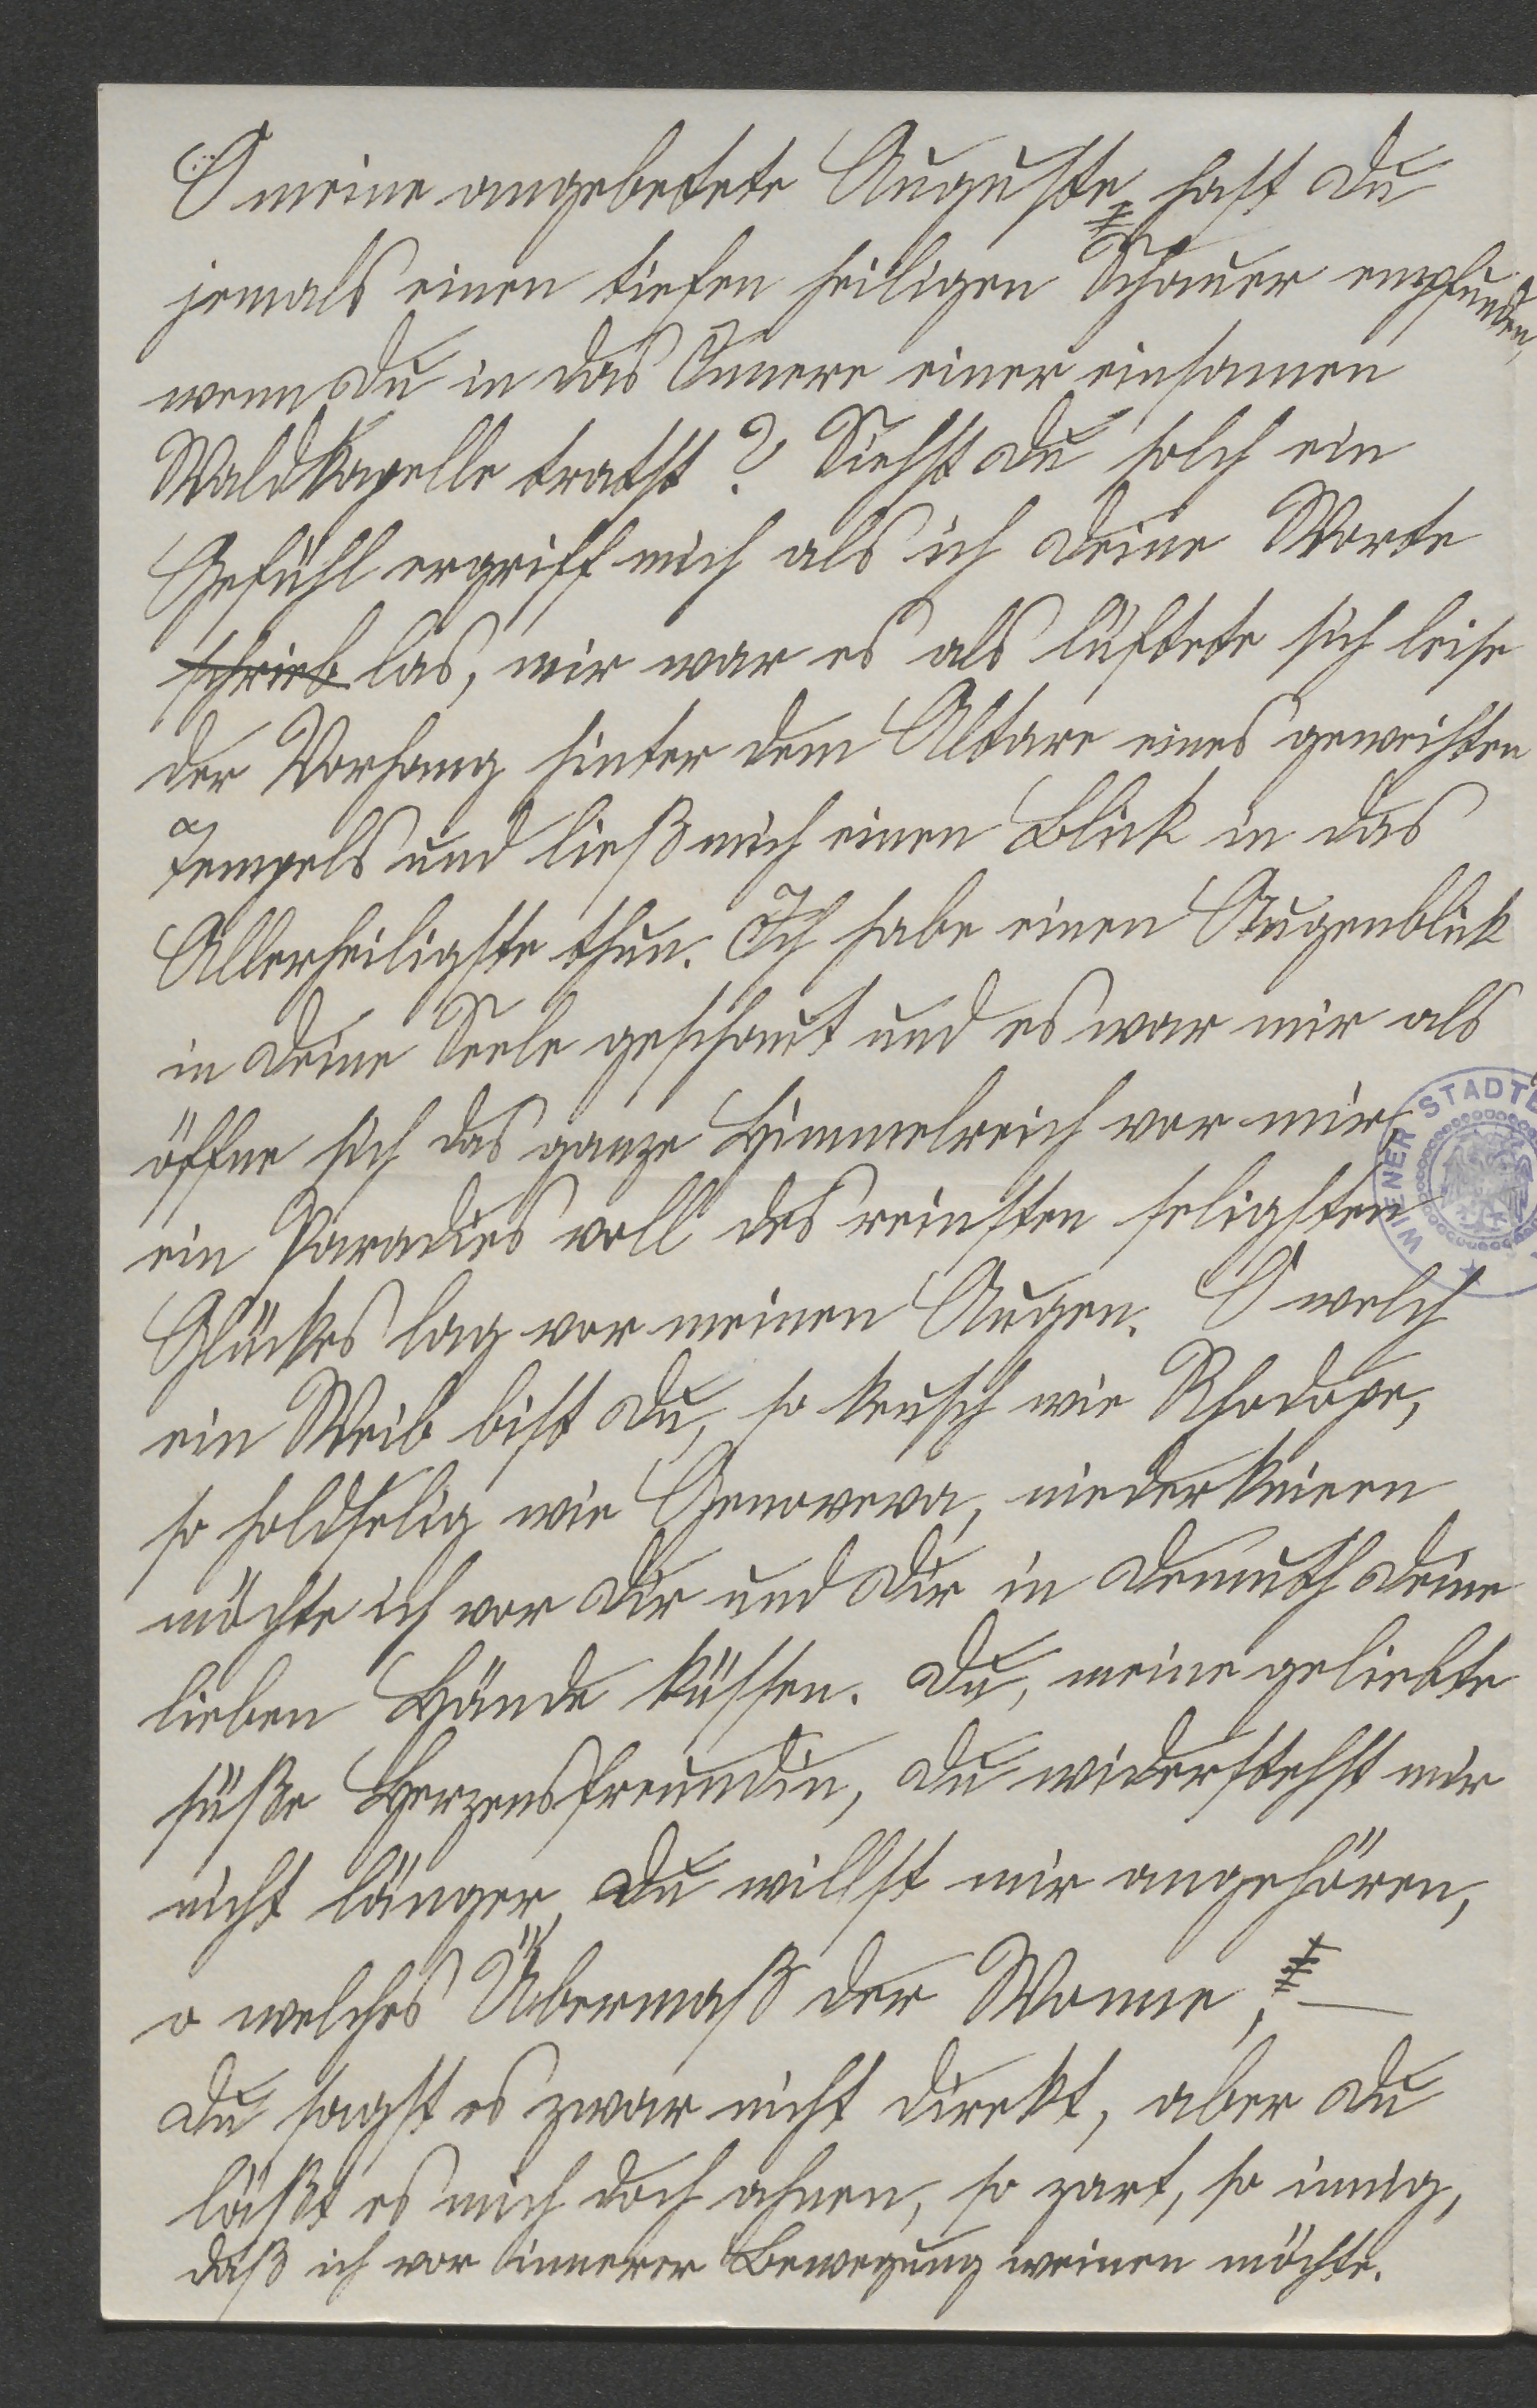 O meine angebetete Auguste, hast Du
jemals einen tiefen heiligen Schauer empfunden,
wenn Du in das Innere einer einsamen
Waldkapelle tratst? Siehst Du solch ein
Gefühl ergriff mich als ich Deine Worte
schrieb las, mir war es als lüftete sich leise
der Vorhang hinter dem Altare eines geweihten
Tempels und ließ mich einen Blick in das
Allerheiligste thun. Ich habe einen Augenblick
in Deine Seele geschaut und es war mir als
öffne sich das ganze Himmelreich vor mir,
ein Paradies voll des reinsten seligsten
Glückes lag vor meinen Augen. O welch
ein Weib bist Du, so keusch wie Rhodope,
so holdselig wie Genoveva, niederknieen
möchte ich vor Dir und Dir in Demuth Deine
lieben Hände küssen. Du, meine geliebte
süße Herzensfreundin, Du widerstehst mir
nicht länger, Du willst mir angehören,
o welches Übermaß der Wonne, —
Du sagst es zwar nicht direkt, aber Du
läßt es mich doch ahnen, so zart, so innig,
daß ich vor innerer Bewegung weinen möchte.
WIENER STADTB